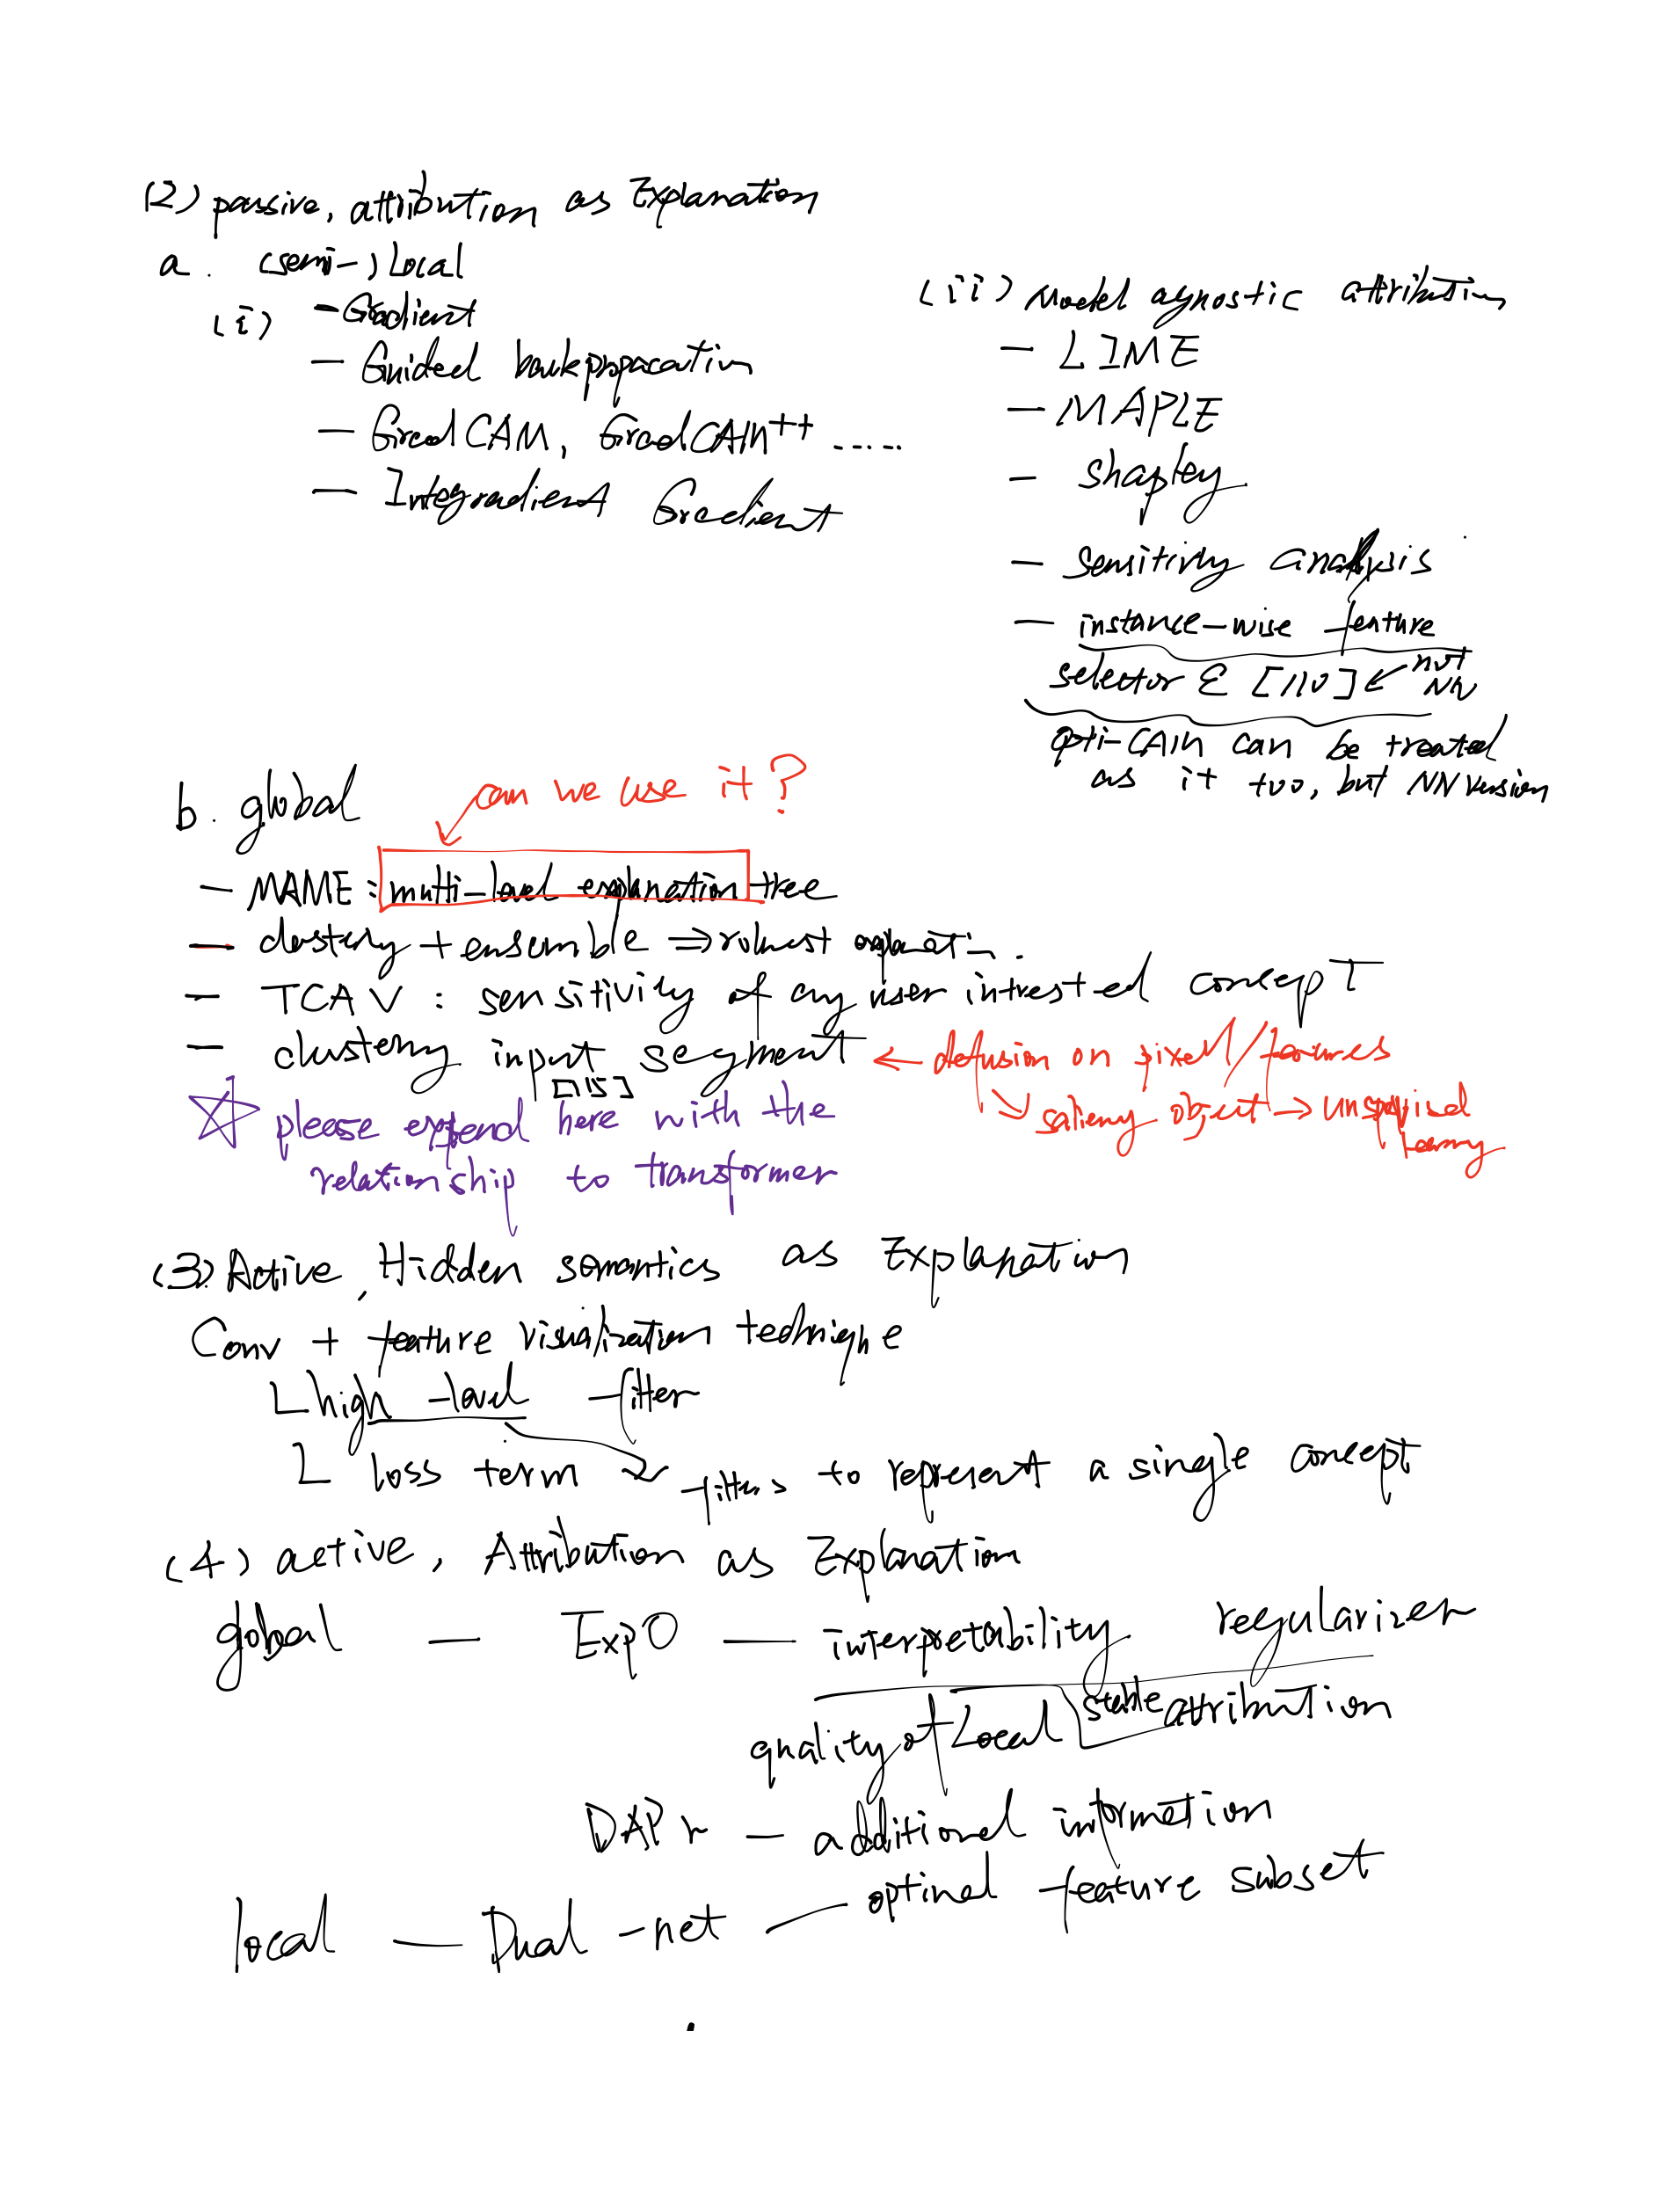 (2) passive, attribution as Explanation
a. (semi-) Local
(i) - Gradient
- Guided backpropacation
- GradCAM, GradCAM++ .....
- Integradient Gradient
(ii) Model agnostic attribution
- LIME
- MAPLE
- shapley
- sensitivity analysis
- instance-wise feature
selector ∈ [110] ← not NN
opti-CAM can be treated
as it too, but NN version
b. global
can we use it?
- MAME : multi-level explanation tree
- clustering + ensemble ⇒ robust explanation.
- TCAV : sensitivity of any user intrested concept
- clustering input segment ← defusion on pixel/features
[115]
↘ saliency object → unsupervised
learning
☆ please expend here with the
relationship to transformer
(3) Active, Hidden semantics as Explanation
Conv + feature visualization technique
L high-level filter
L loss term ↘ filters to represent a single concept
(4) active, Attribution as Explanation
global — ExpO — interpretability regularizer
quality of Local stable attribution
DAPr — additional information
local — Dual-net — optimal feature subset